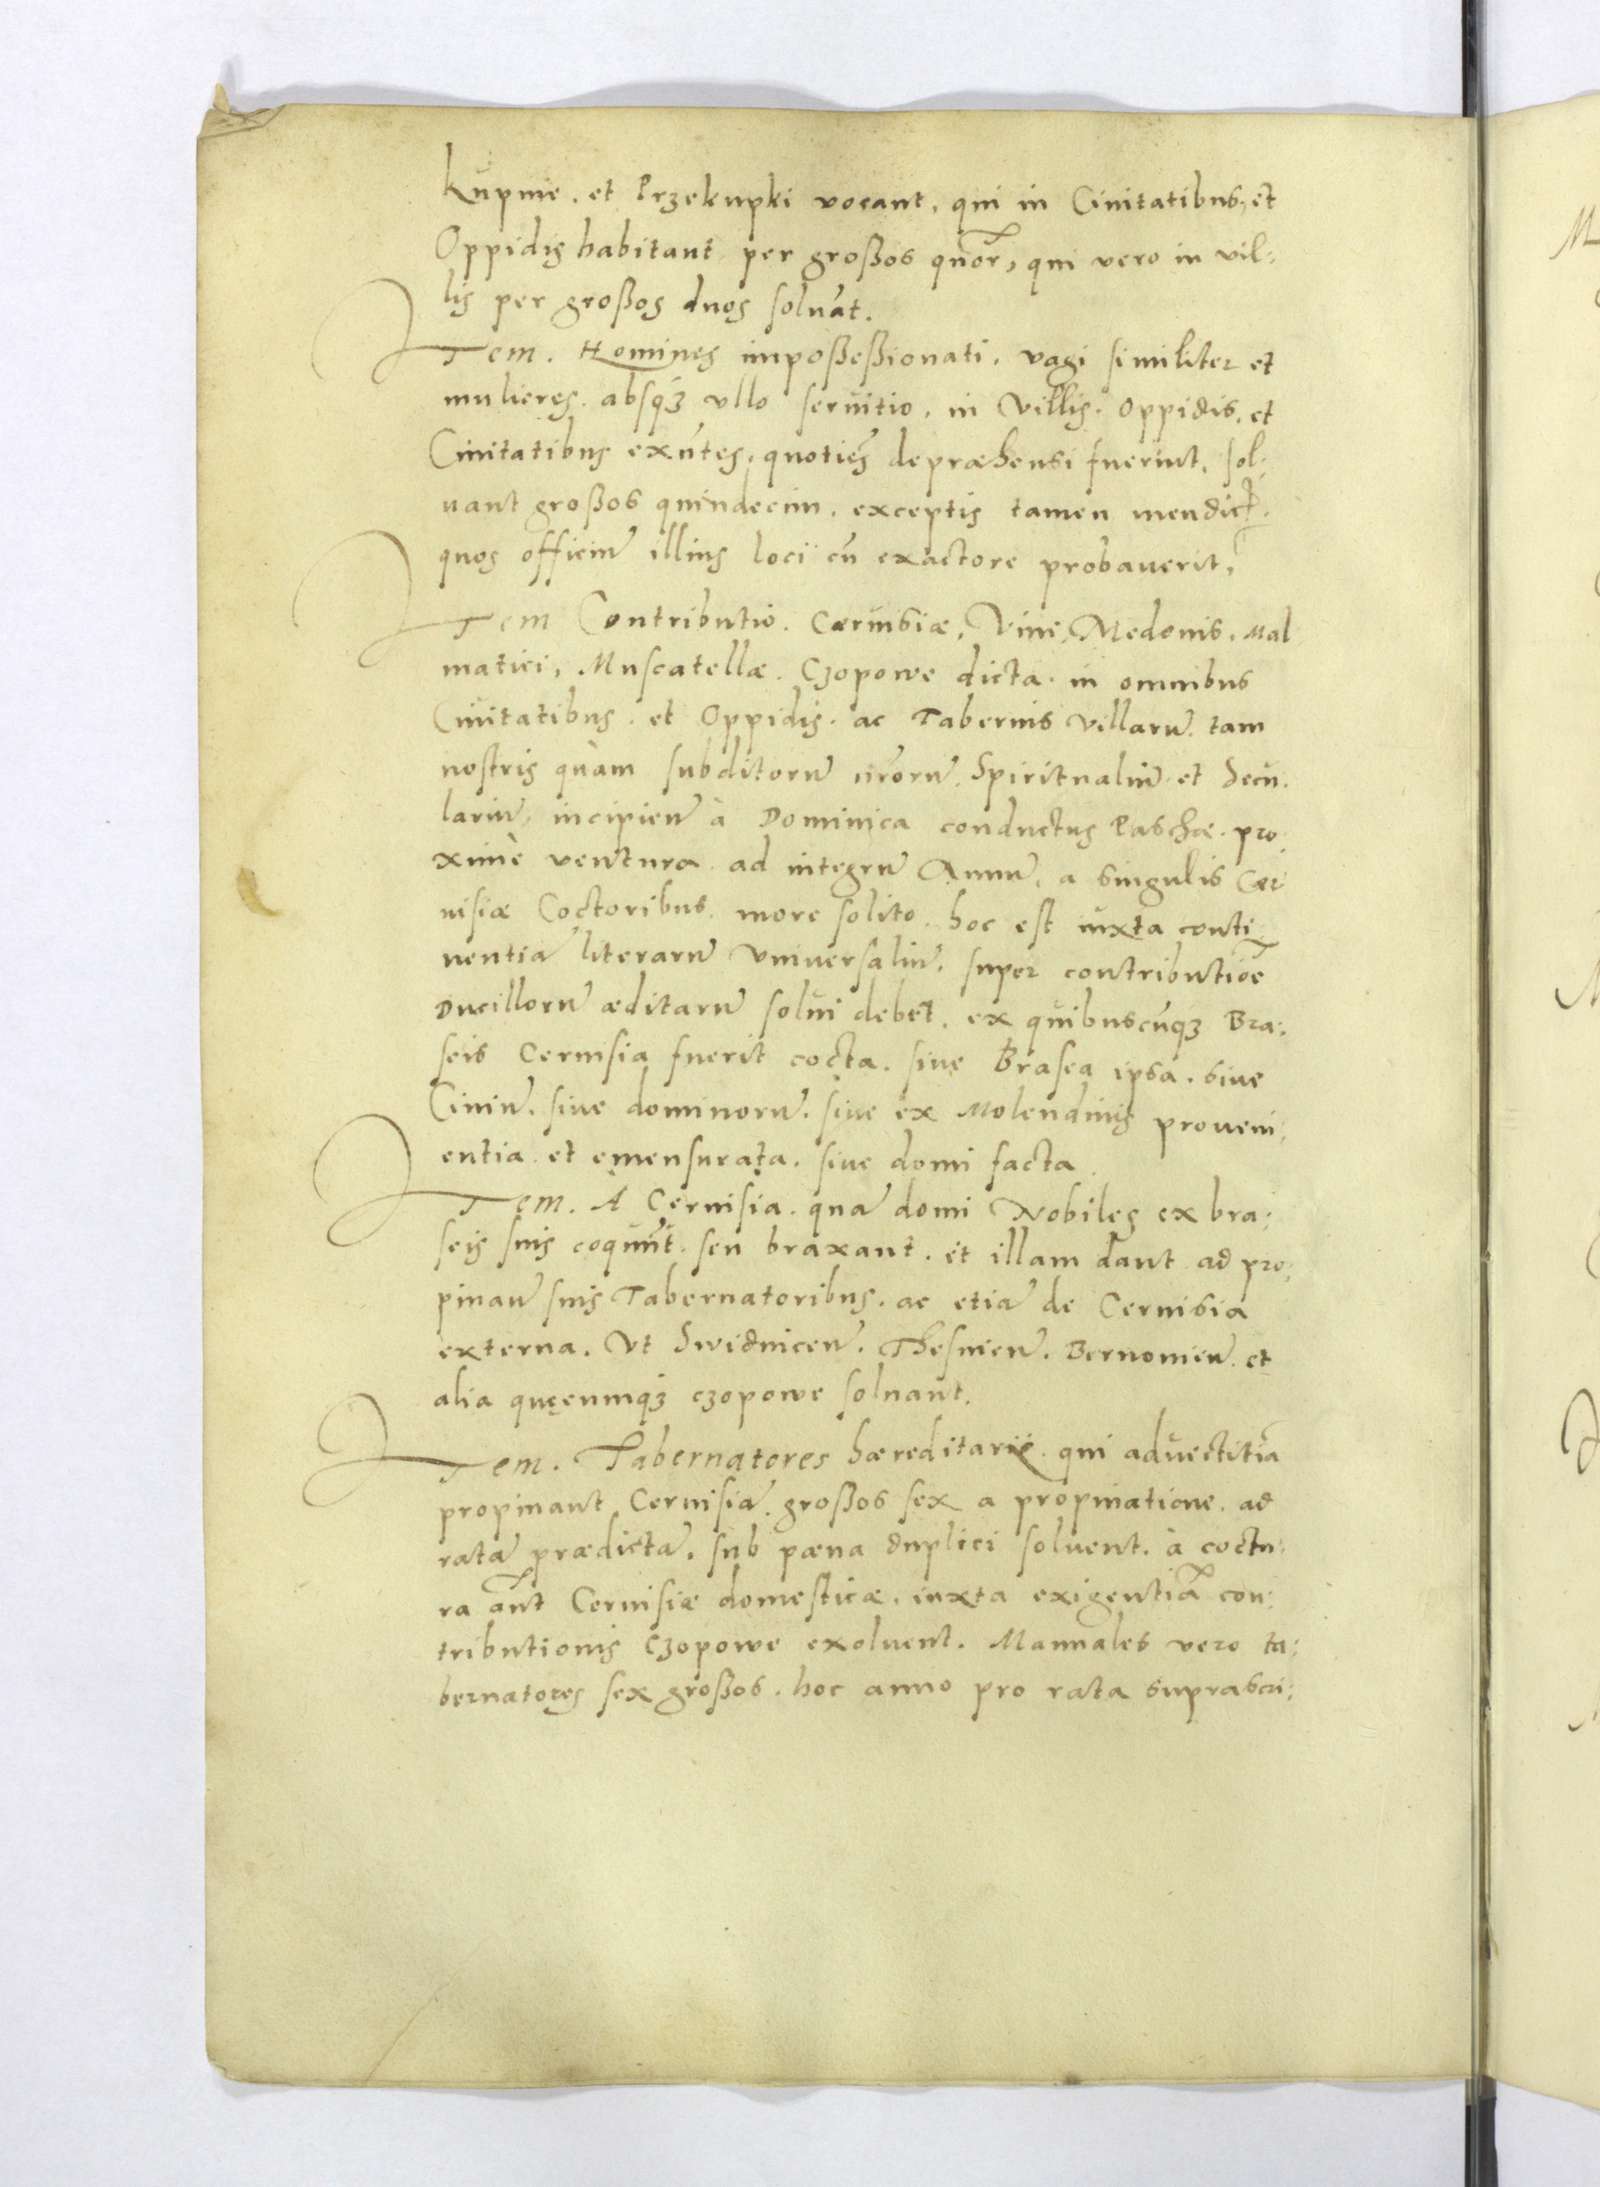 Kupnie. et Przekupki vocant, qui in Ciuitatibus, et
Oppidis habitant per großos qũor, qui vero in vil:
lis per großos duos soluãt.
Item. Homines impoßeßionati, vagi similiter et
mulieres, absq3 vllo seruitio, in Villis, Oppidis, et
Ciuitatibus exũtes, quoties depræhensi fuerint, sol:
uant großos quindecim, exceptis tamen mendic̃
quos officiũ illius loci cũ exactore probauerit,
Item Contributio. Cæruisiæ, Vini, Medonis, Mal
matici, Muscatellæ. Czopowe dicta. in omnibus
Ciuitatibus. et Oppidis. ac Tabernis villarũ tam
nostris quàm subditorũ nr̃orũ, Spiritualiũ et Secu:
lariũ, incipieñ à Dominica conductus Paschæ. pro:
ximè ventura. ad integrũ Annũ, a singulis Cær
uisiæ Coctoribus. more solito. hoc est iuxta conti:
nentiã literarũ Vniuersaliũ, super contributiõe
Ducillorũ æditarũ solui debet, ex quibuscũq3 Bra:
seis Ceruisia fuerit cocta. siue Brasea ipsa. siue
Ciuiũ. siue dominorũ. siue ex Molendinis proueni:
entia et emensurata. siue domi facta
Item. A Ceruisia. quã domi Nobiles ex bra:
seis suis coqunt. seu braxant. et illam dant ad pro:
pinañ suis Tabernatoribus. ac etiã de Ceruisia
externa. Vt Swidniceñ. Thesnieñ. Bernouieñ. et
alia quęcunq3 czopowe soluant.
Item. Tabernatores hæreditarii. qui aduectitiã
propinant Ceruisiã. großos sex a propinatione. ad
ratã prædictã, sub pæna duplici soluent. à coctu:
ra aũt Ceruisiæ domesticæ, iuxta exigentiã con:
tributionis Czopowe exoluent. Manuales vero ta:
bernatores sex großos. hoc anno pro rata suprascri: